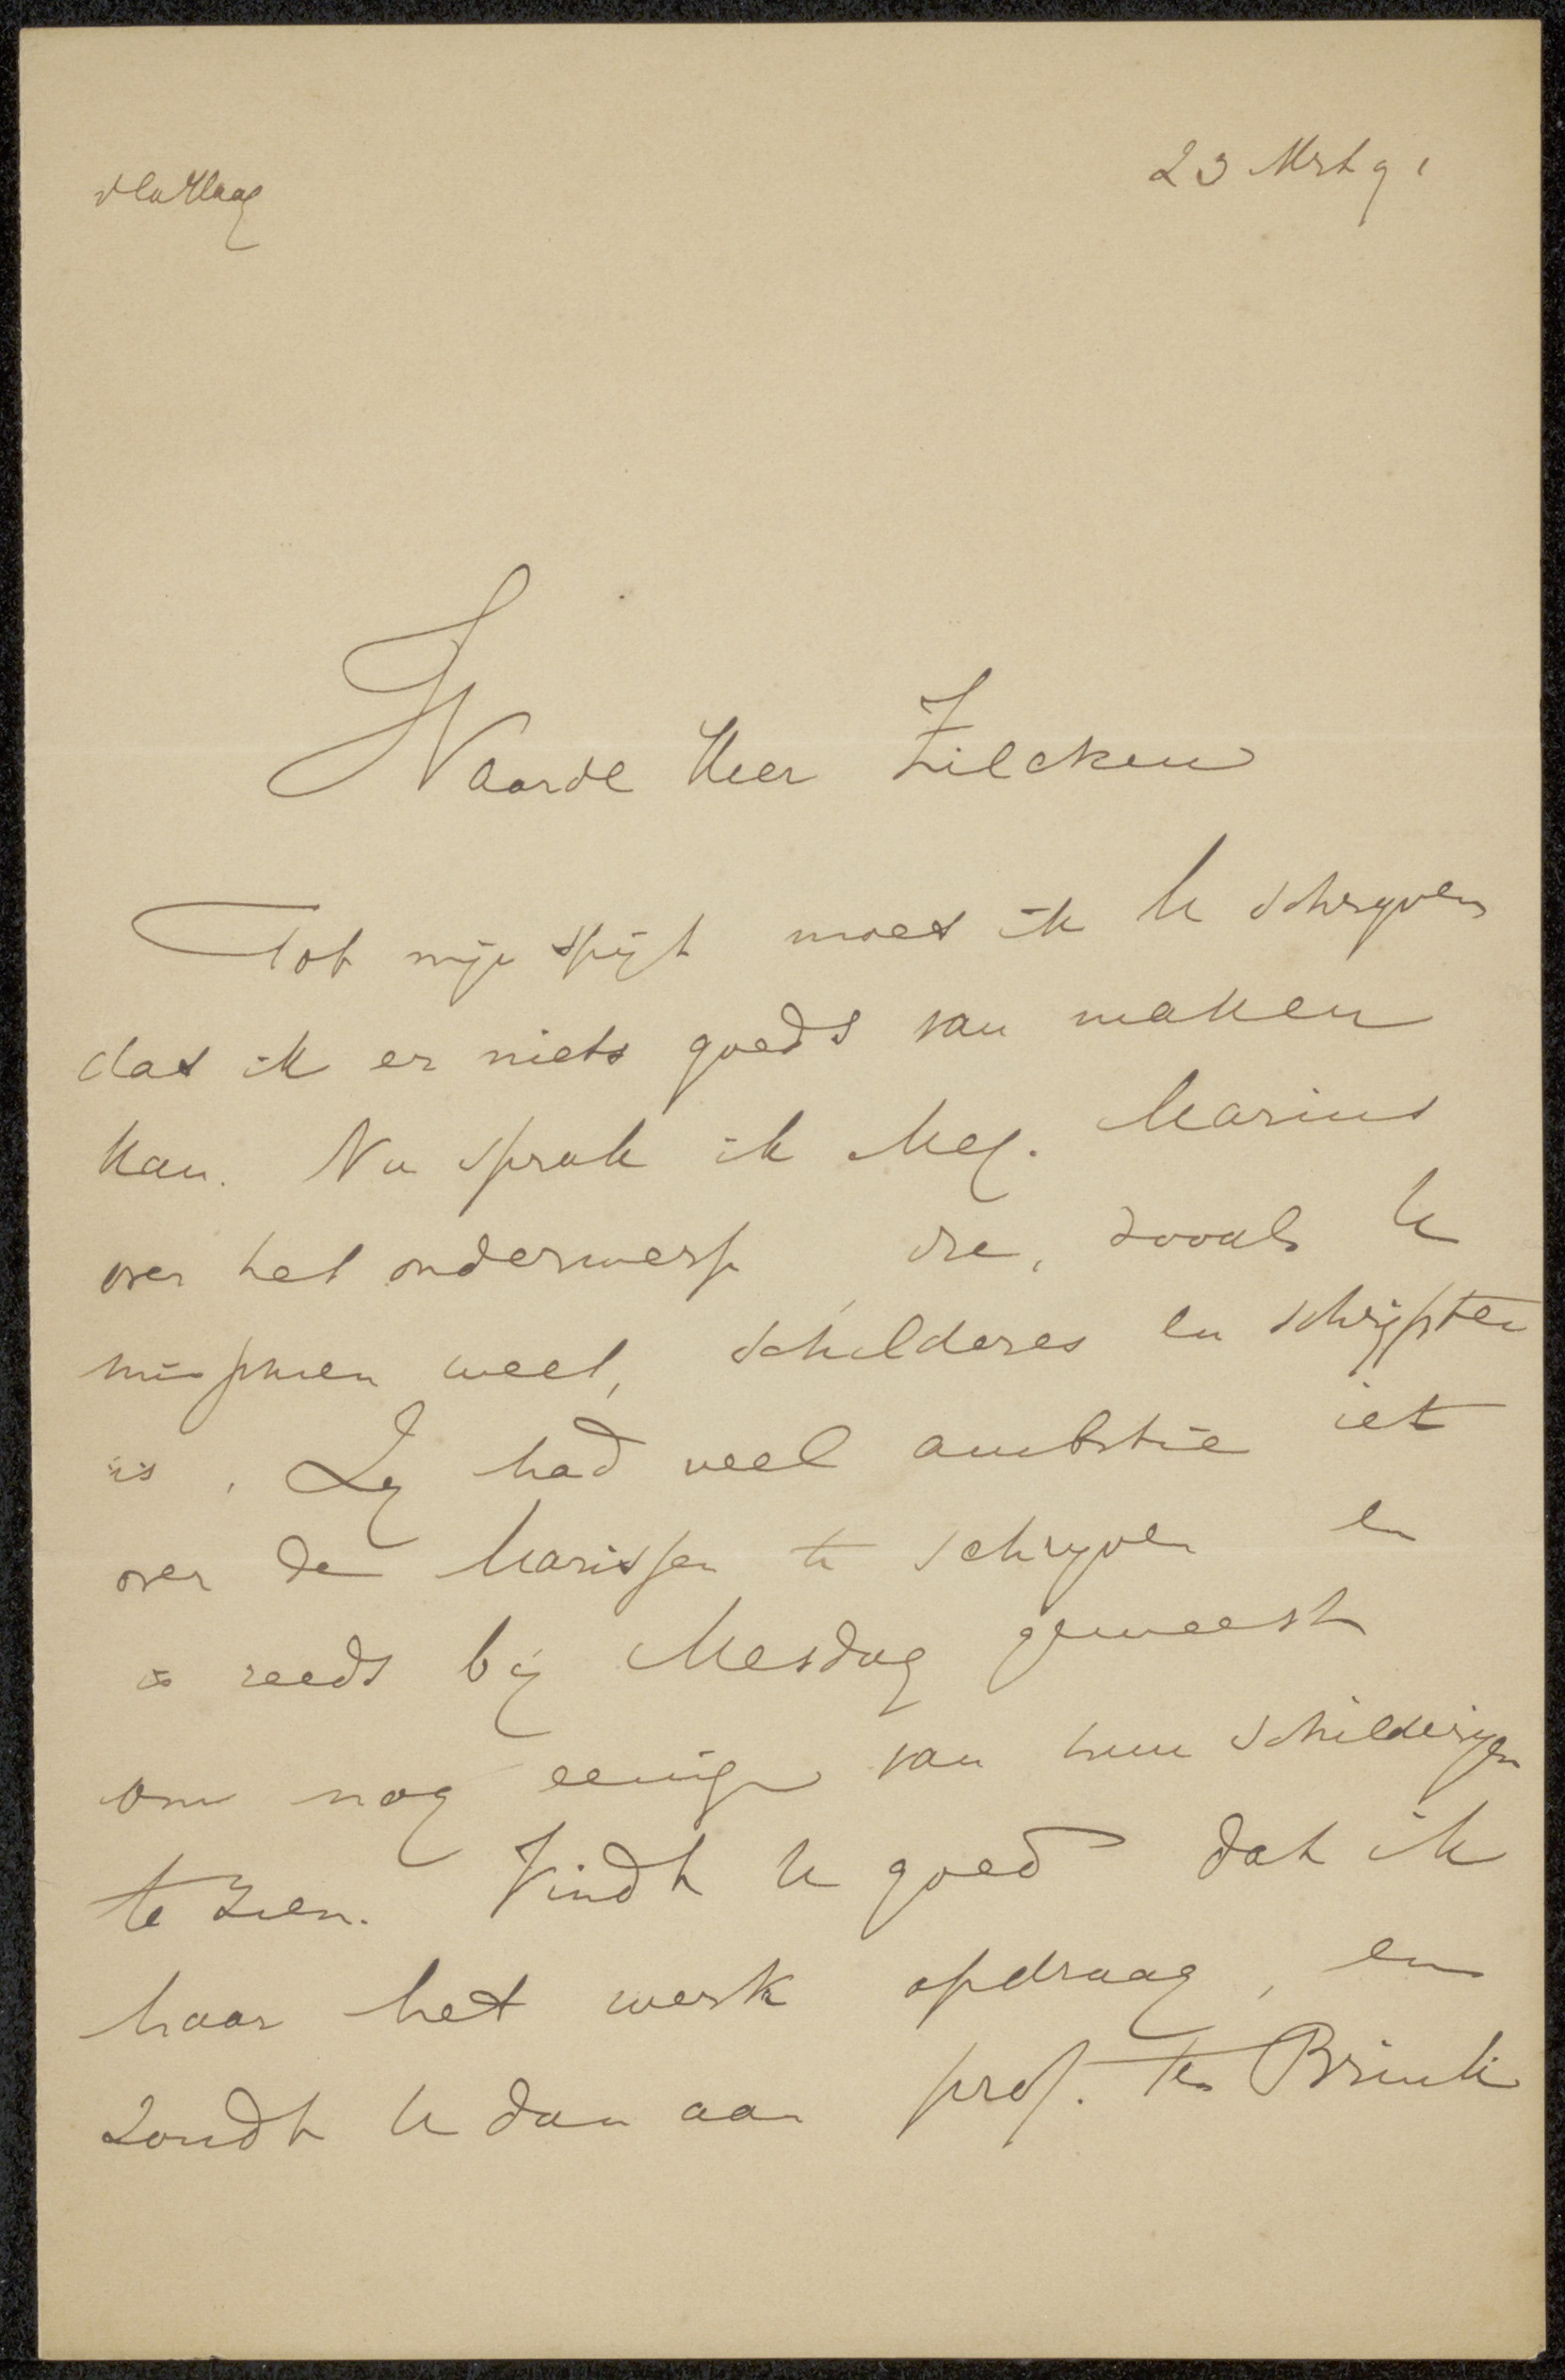 d Haag
23 Mrt 91
Waarde Heer Zilcken
Tot mijn spijt moet ik U schrijven
dat ik er niets goeds van maken
kan. Nu sprak ik Mej. Marius
over het onderwerp die, zooals U
misschien weet, schilderes en schrijfster
is. Zij had veel ambitie iets
over de Marissen te schrijven en
is reeds bij Mesdag geweest
om nog eenige van hun schilderijen
te zien. Vindt U goed dat ik
haar het werk opdraag, en
zoudt U dan aan prof. ten Brink